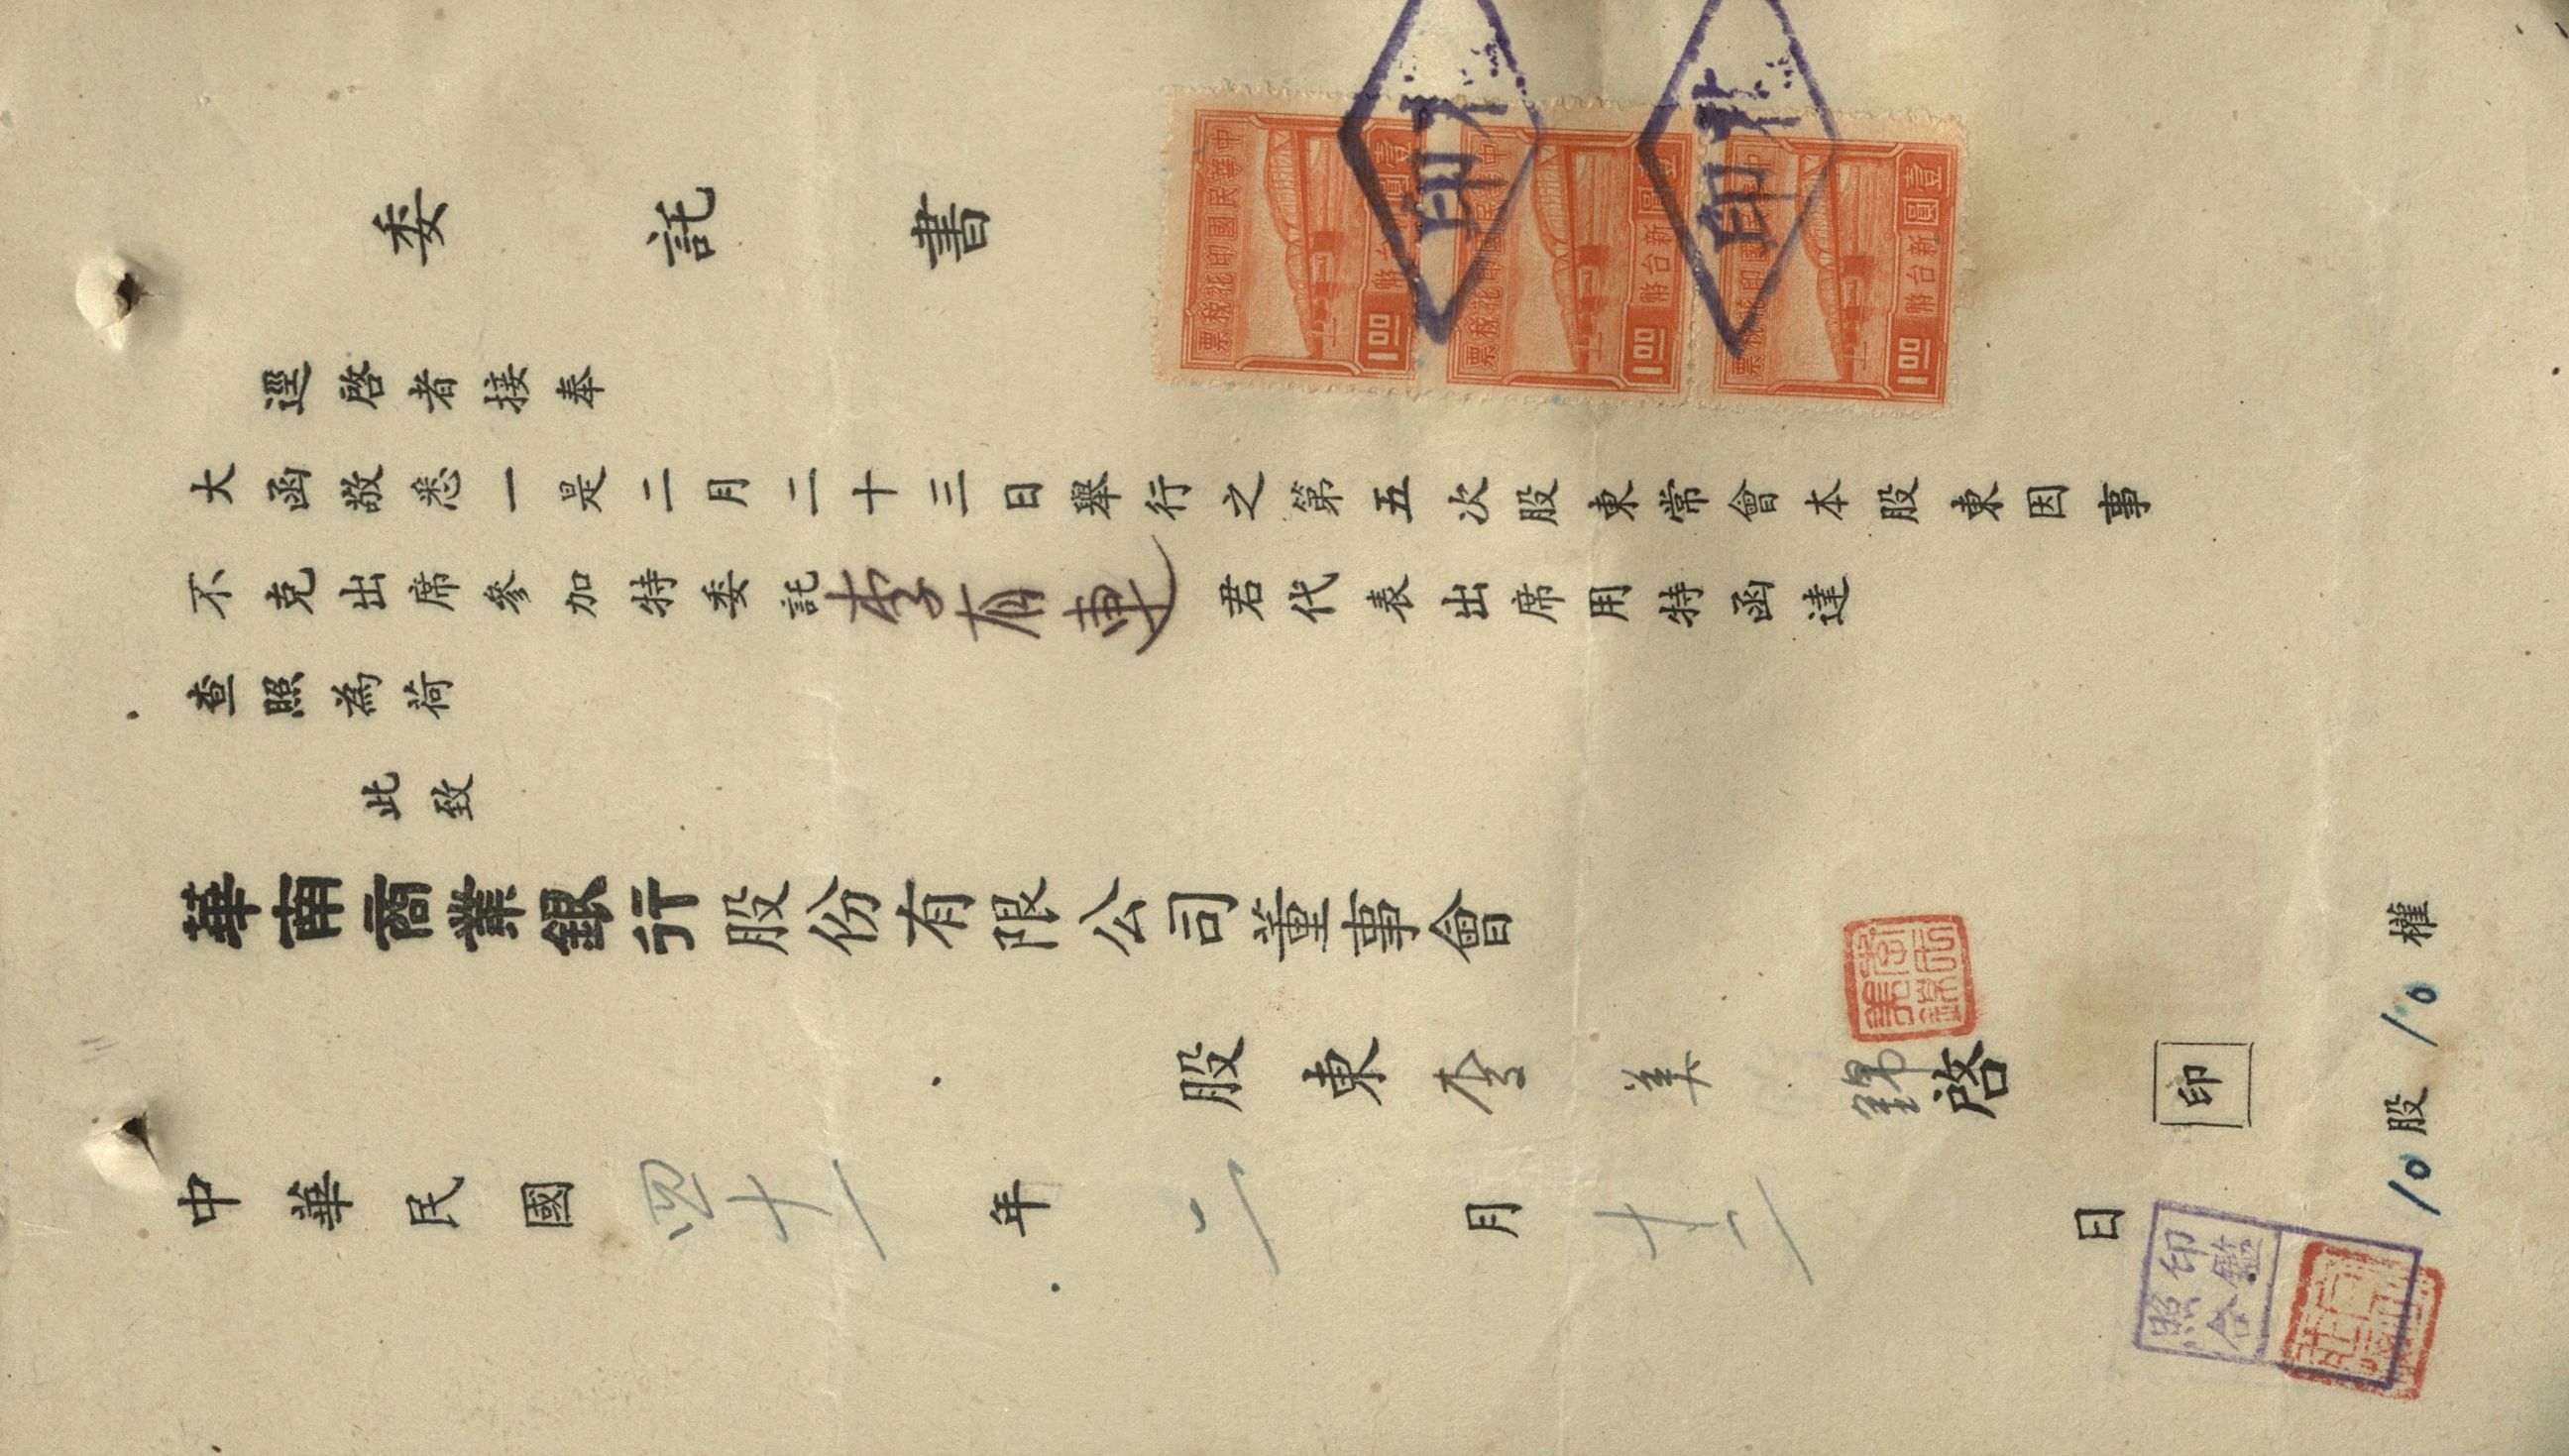 委託書
逕啓者接奉
大函敬悉一是二月二十三日舉行之第五次股東常會本股東因事
不克出席參加特委託李有連君代表出席用特函達
查照為荷
此致
華南商業銀行股份有限公司董事會
股東李美錦啓
印
中華民國四十一年二月十二日
10股10權
印鑑
照合
中華民國印花稅票
壹圓
新台幣
1.00
中華民國印花稅票
壹圓
新台幣
1.00
中華民國印花稅票
壹圓
新台幣
1.00
印
印